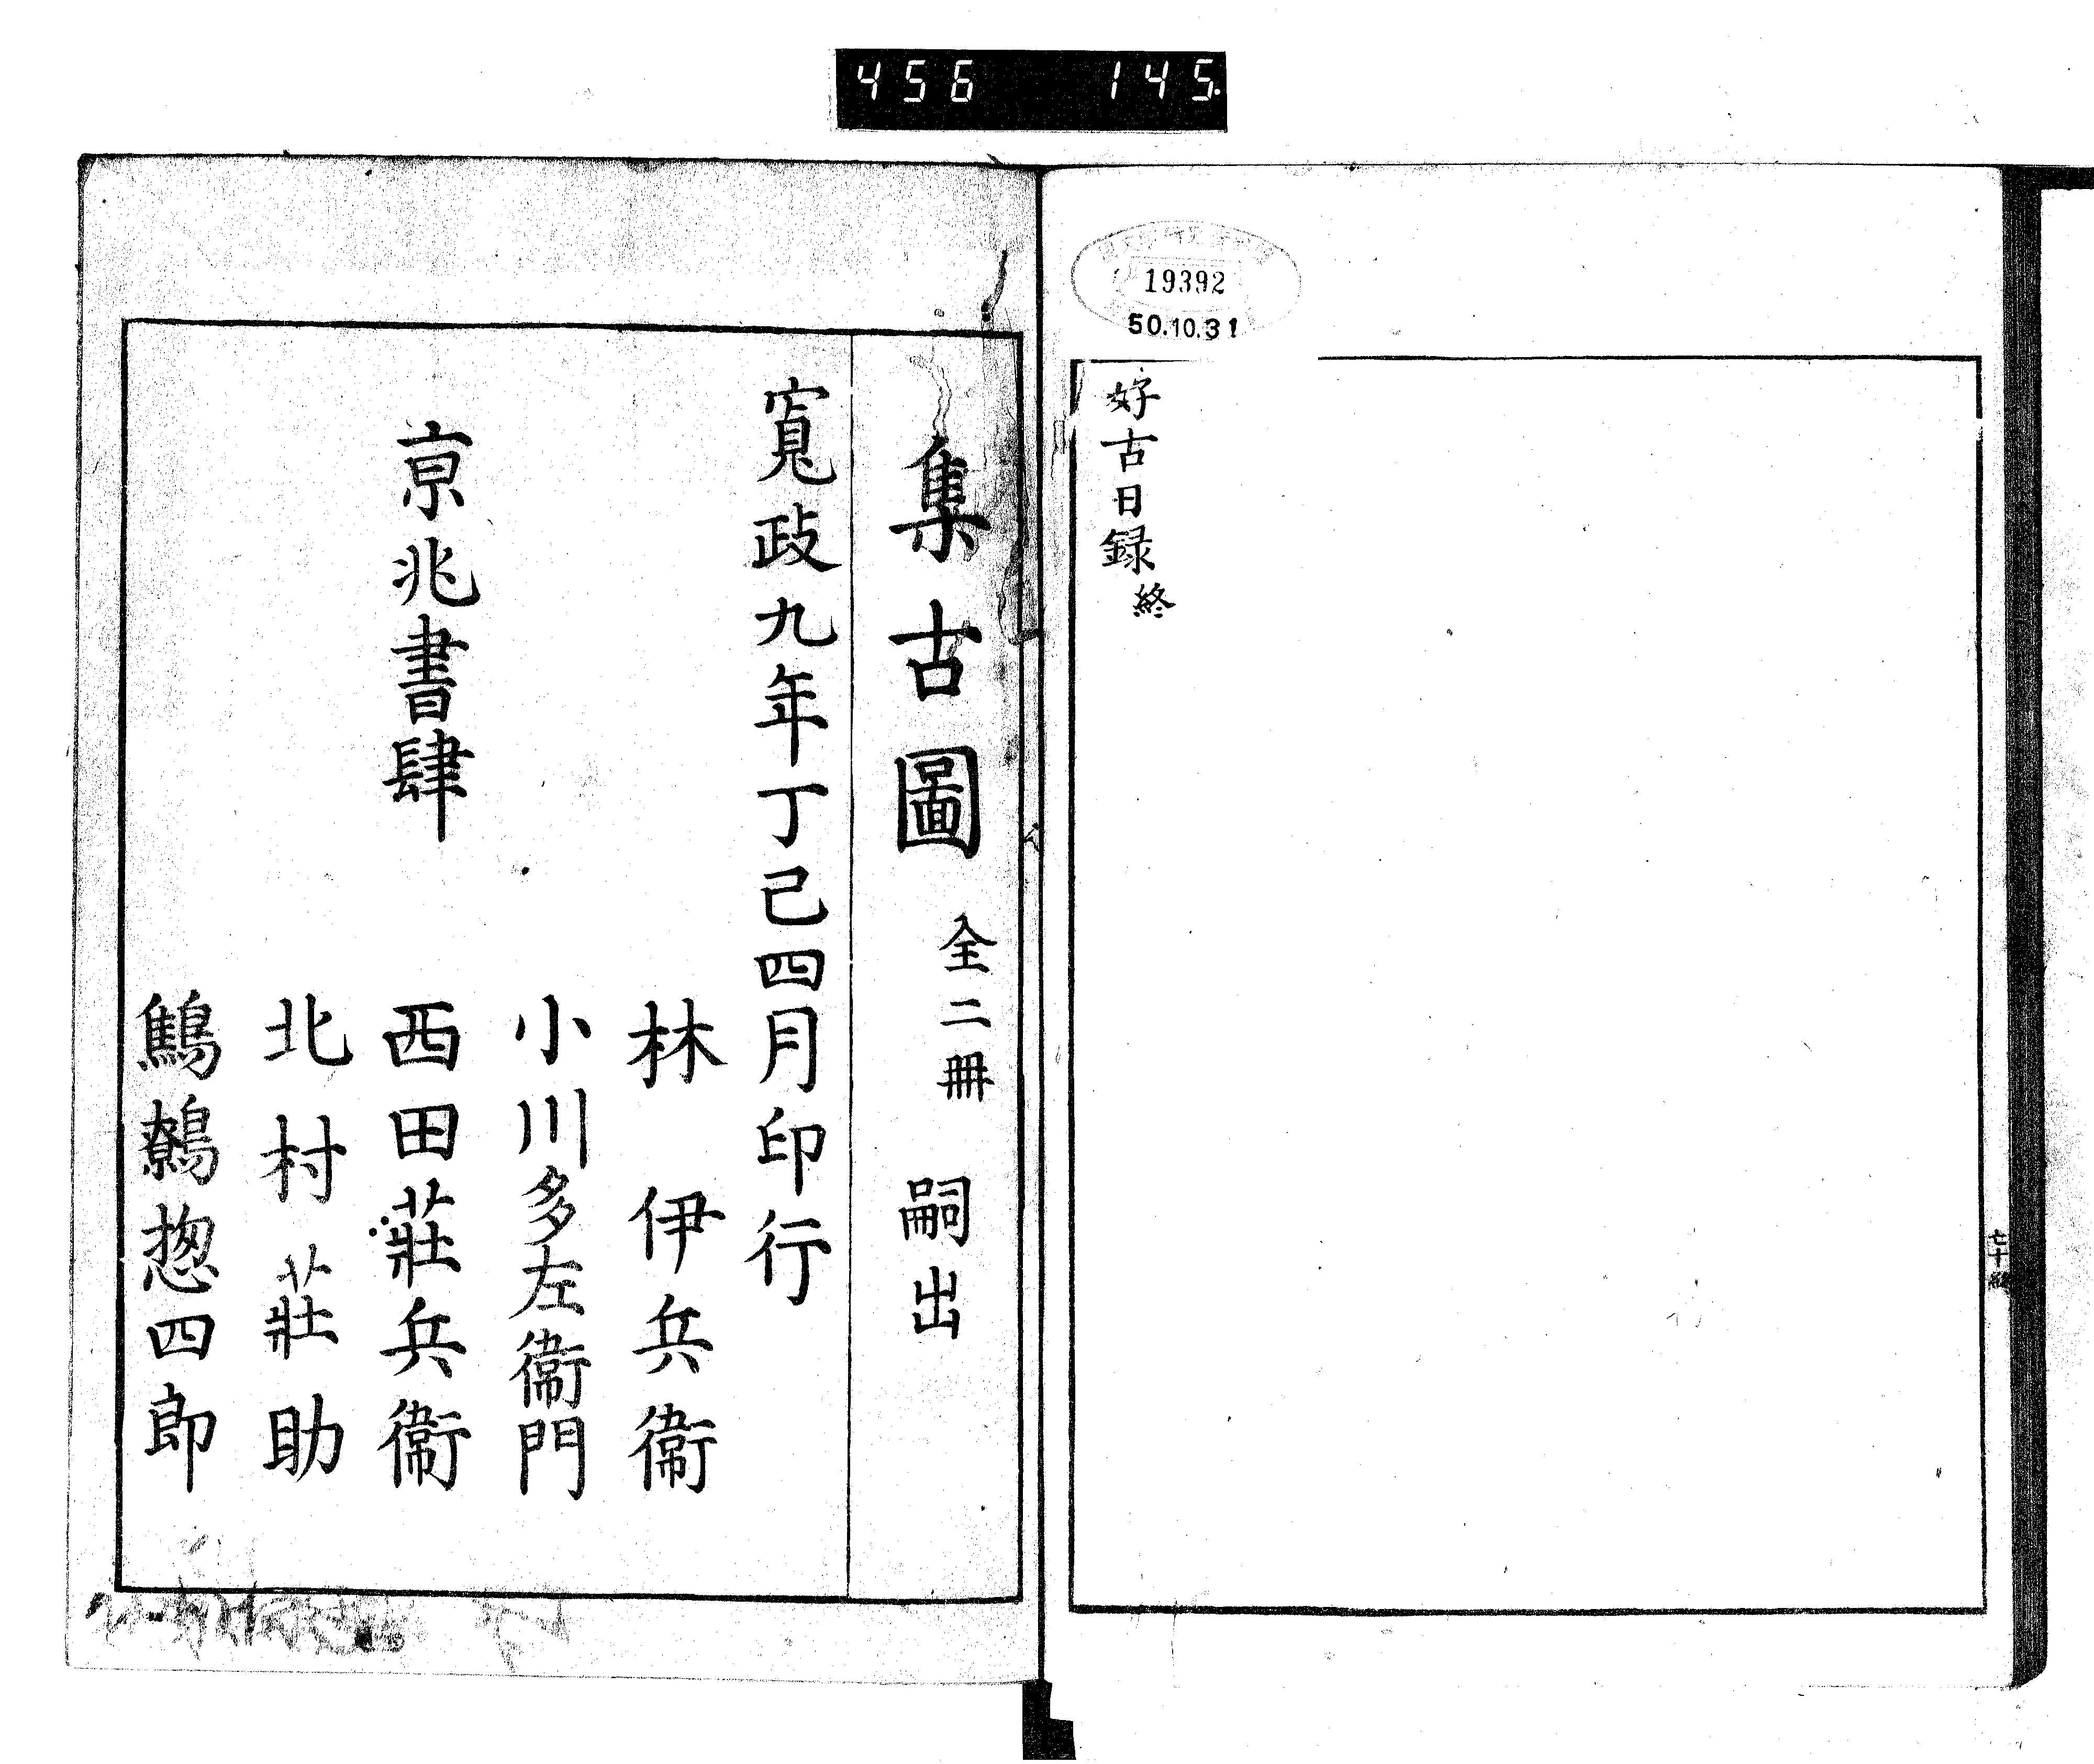 456 145.
19392
50.10.31
好古日録終
集古圖 全二冊 嗣出
寛政九年丁己四月印行
京兆書肆
林伊兵衞
小川多左衞門
西田莊兵衞
北村莊助
鷦鷯惣四郎